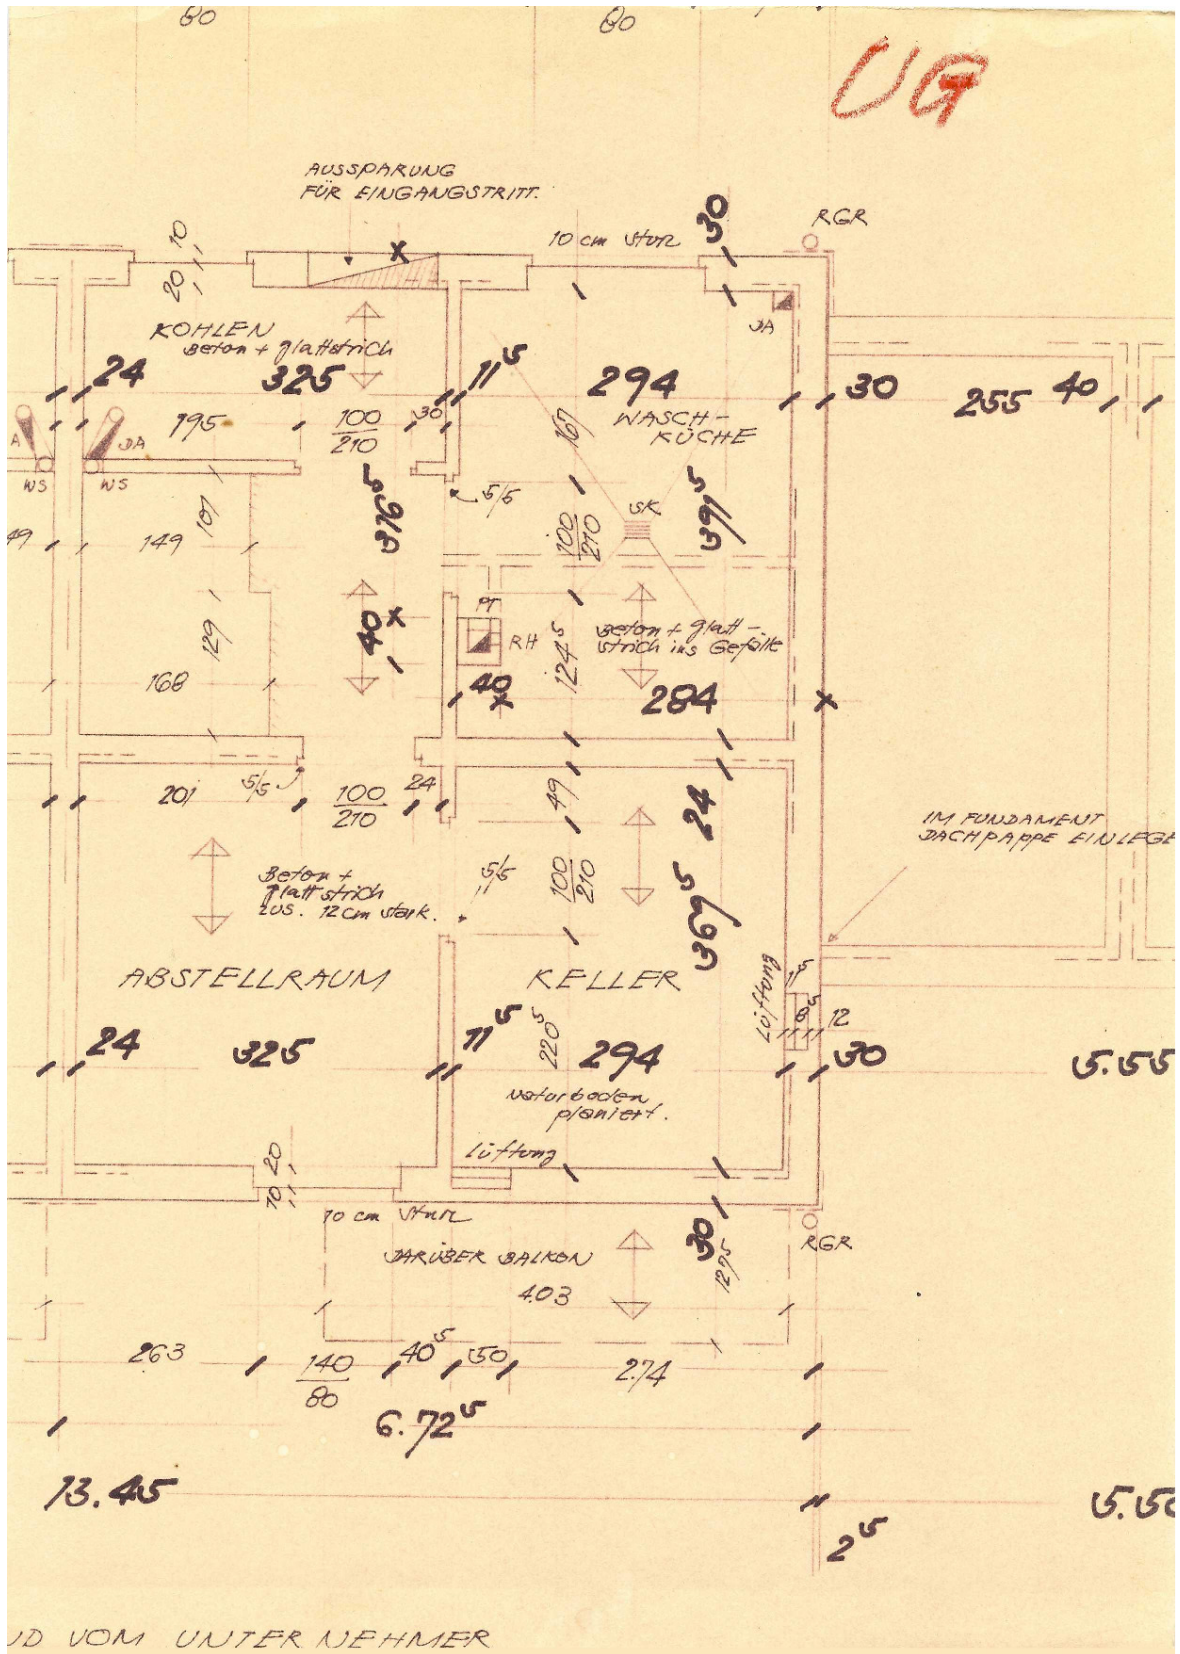 80
80
UG
AUSSPARUNG
FÜR EINGANGSTRITT.
10
20
10 cm Sturz
30
RGR
KOHLEN
Beton + glattstrich
DA
24
325
11⁵
294
30
255
40
195
100
210
30
WASCH-
KÜCHE
167
A
DA
WS
WS
5/5
SK
101
376⁵
391⁵
49
149
100
210
PT
RH
40
129
124⁵
Beton + glatt-
strich ins Gefälle
168
40
284
201
5/5
100
210
24
49
24
IM FUNDAMENT
DACHPAPPE EINLEGE
Beton +
glattstrich
zus. 12 cm stark.
5/5
100
210
369⁵
ABSTELLRAUM
KELLER
Lüftung
12
24
325
11⁵
220⁵
294
30
5.55
Naturboden
planiert.
Lüftung
20
10
10 cm Sturz
30
RGR
DARÜBER BALKON
129⁵
403
263
140
80
40⁵
50
274
6.72⁵
13.45
5.50
2⁵
UD VOM UNTERNEHMER